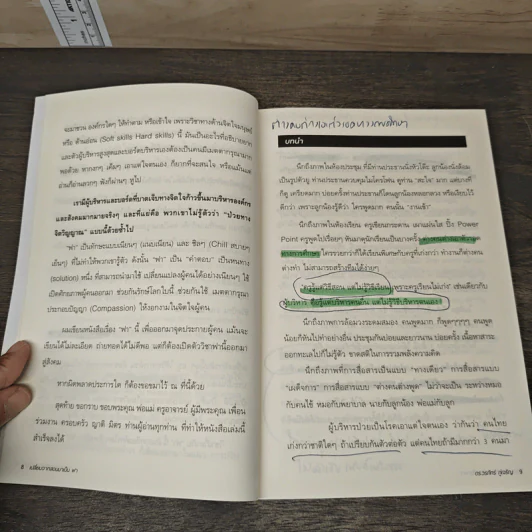 จะมาชวน องค์กรใดๆ ให้ทำตาม หรือเข้าใจ เพราะวิชาทางด้านจิตใจมนุษย์
หรือ ด้านอ่อน (Soft skills Hard skills) นี้ มันเป็นอะไรที่อธิบายยาก
และตัวผู้บริหารสูงสุดและบอร์ดบริหารเองต้องเป็นคนมีเมตตากรุณามาก
พอด้วย หากงกๆ เค็มๆ เอาแต่ใจตนเอง ก็ยากที่จะสนใจ หรือแม้แต่
อ่านก็อ่านลวกๆ ฟังก็ผ่านๆ หูไป
เรามีผู้บริหารและบอร์ดที่บาดเจ็บทางจิตใจก้าวขึ้นมาบริหารองค์กร
และสังคมมากมายจริงๆ และที่แย่คือ พวกเขาไม่รู้ตัวว่า "ป่วยทาง
จิตวิญญาณ" แบบนี้ด้วยซ้ำไป
"ฟา" เป็นทักษะแบบเนียนๆ (แนบเนียน) และ ชิลๆ (Chill สบายๆ
เย็นๆ) ที่ไม่ทำให้พวกเรารู้ตัว ดังนั้น "ฟา" เป็น "คำตอบ" เป็นหนทาง
(solution) หนึ่ง ที่สามารถนำมาใช้ เปลี่ยนแปลงผู้คนได้อย่างเนียนๆ ใช้
เปิดศักยภาพผู้คนออกมา ช่วยกันรักษ์โลกใบนี้ ช่วยกันใช้ เมตตากรุณา
ประกอบปัญญา (Compassion) ให้งอกงามในจิตใจผู้คน
ผมเขียนหนังสือเรื่อง "ฟา" นี้ เพื่อออกมาจุดประกายผู้คน แม้นจะ
เขียนได้ไม่ละเอียด ถ่ายทอดได้ไม่ดีพอ แต่ก็ต้องเปิดตัววิชาฟานี้ออกมา
สู่สังคม
หากผิดพลาดประการใด ก็ต้องขอขมาไว้ ณ ที่นี้ด้วย
สุดท้าย ขอกราบ ขอบพระคุณ พ่อแม่ ครูอาจารย์ ผู้มีพระคุณ เพื่อน
ร่วมงาน ครอบครัว ญาติ มิตร ท่านผู้อ่านทุกท่าน ที่ทำให้หนังสือเล่มนี้
สำเร็จลงได้
8 เปลี่ยนจากสอนมาเป็น ฟา
บทนำ
นึกถึงภาพในห้องประชุม ที่มีท่านประธานนั่งหัวโต๊ะ ลูกน้องนั่งล้อม
เป็นรูปตัวยู ท่านประธานควบคุมไมโครโฟน ดูท่าน "พอใจ" มาก แต่บางที
ก็ดุ เครียดมาก บ่อยครั้งท่านประธานก็โดนลูกน้องหลอกลวง หรือเงียบไว้
ดีกว่า เพราะลูกน้องรู้ดีว่า ใครพูดมาก คนนั้น "งานเข้า"
นึกถึงภาพในห้องเรียน ครูเขียนกระดาน เผาแผ่นใส ปิ้ง Power
Point ครูพูดไปเรื่อยๆ หันมาดุนักเรียนเป็นบางครั้ง
ใครรวยกว่าก็ได้เรียนพิเศษกับครูที่เก่งกว่า ทำงานก็ต่างคน
ต่างทำ ไม่สามารถสร้างทีมได้ง่ายๆ
"ครูรู้แต่วิธีสอน แต่ไม่รู้วิธีเรียน เพราะครูเรียนไม่เก่ง" เช่นเดียวกับ
ผู้บริหาร คือรู้แต่บริหารคนอื่น แต่ไม่รู้วิธีบริหารตนเอง
นึกถึงภาพการล้อมวงระดมสมอง คนพูดมาก ก็พูดๆๆๆๆ คนพูด
น้อยก็หันไปทำอย่างอื่น ประชุมกันบ่อยและยาวนาน บ่อยครั้ง เนื้อหาสาระ
ออกทะเลไปก็ไม่รู้ตัว ขาดสติในการรวมพลังความคิด
นึกถึงภาพที่การสื่อสารเป็นแบบ "ทางเดียว" การสื่อสารแบบ
"เผด็จการ" การสื่อสารแบบ "ต่างคนต่างพูด" ไม่ว่าจะเป็น ระหว่างหมอ
กับคนไข้ หมอกับพยาบาล นายกับลูกน้อง พ่อแม่กับลูก
ผู้บริหารป่วยเป็นโรคเอาแต่ใจตนเอง ว่ากันว่า คนไทย
เก่งกว่าชาติใดๆ ถ้าเปรียบกันตัวต่อตัว แต่คนไทยถ้ามีมากกว่า 3 คนมา
ดร.วรภัทร์ ภู่เจริญ 9